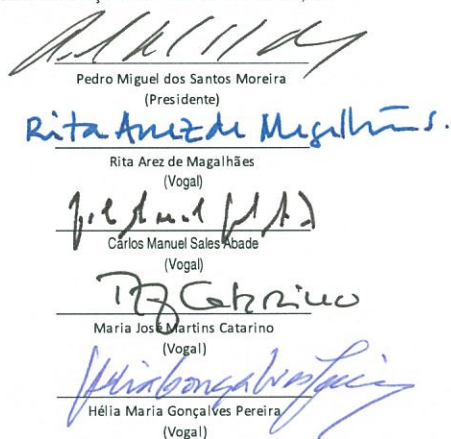 Pedro Miguel dos Santos Moreira
(Presidente)
Rita Arez de Magalhães.
Rita Arez de Magalhães
(Vogal)
Carlos Manuel Sales Abade
(Vogal)
Catarino
Maria José Martins Catarino
(Vogal)
Hélia Gonçalves Pereira
Hélia Maria Gonçalves Pereira
(Vogal)